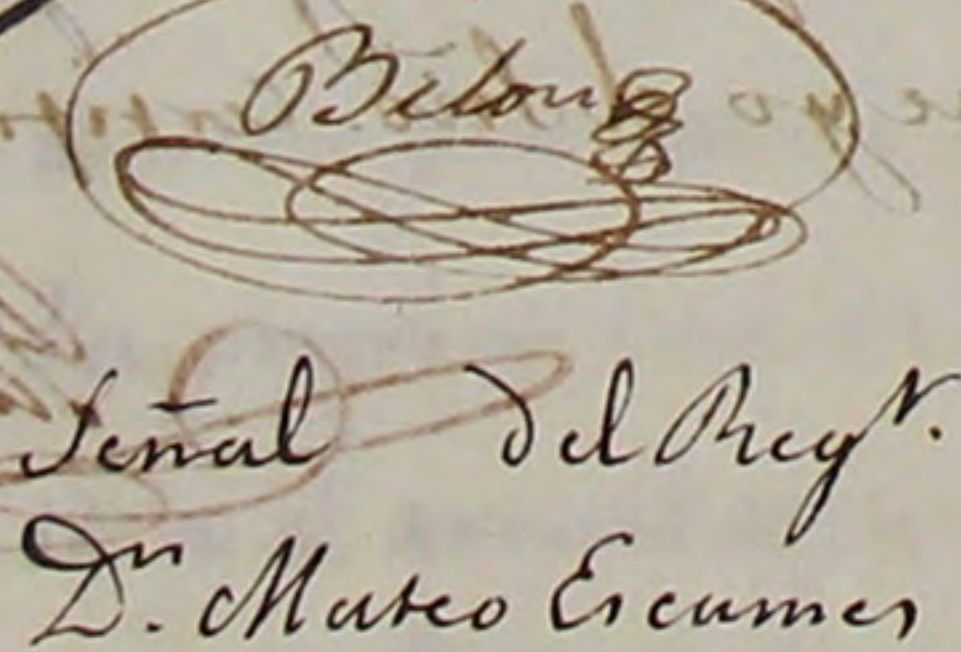 Belon
Señal del Regr.
Dn. Mateo Escames